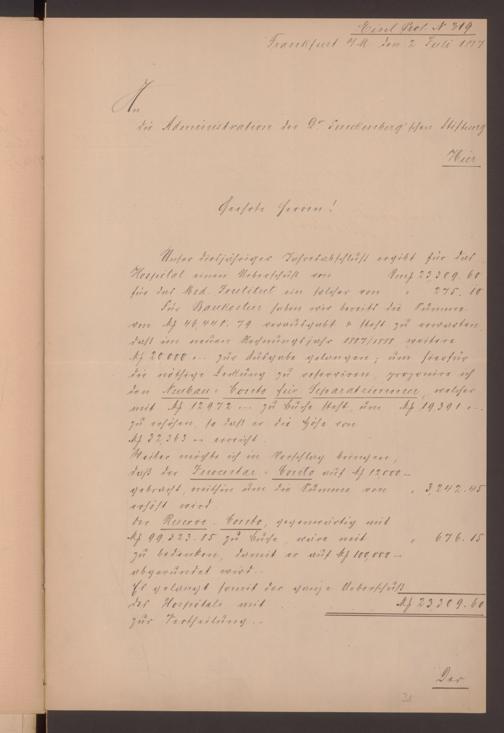 Einl. Prot. N 319
Frankfurt a/M. den 2 Juli 1887
An
die Administration der Dr Senckenberg'schen Stiftung
Hier
Geehrte Herren!
Unser diesjähriger Jahresabschluß ergibt für das
Hospital einen Ueberschuß von Rmf 23,309.60
für das Med. Institut ein solcher von " 275.10
Für Baukosten haben wir bereits die Summe
von Mf 46,441.79 verausgabt & steht zu erwarten,
daß im neuen Rechnungsjahr 1887/1888 weitere
Mf 20 000 -.- zur Ausgabe gelangen; um hierfür
die nöthige Deckung zu reserviren, proponire ich
den Neubau-Conto für Separatzimmer, welcher
mit Mf 12972 -.- zu Buche steht, um Mf 19,391 -.-
zu erhöhen, so daß er die Höhe von
Mf 32,363 -.- erreicht.
Weiter möchte ich in Vorschlag bringen,
daß der Inventar-Conto auf Mf 12000 -
gebracht, mithin um die Summe von " 3,242.45
erhöht wird
Der Reserve-Conto, gegenwärtig mit
Mf 99,323.85 zu Buche, wäre mit " 676.15
zu bedenken, damit er auf Mf 100,000 -
abgerundet wird.
Es gelangt somit der ganze Ueberschuß
des Hospitals mit Mf 23309.60
zur Vertheilung.
Der